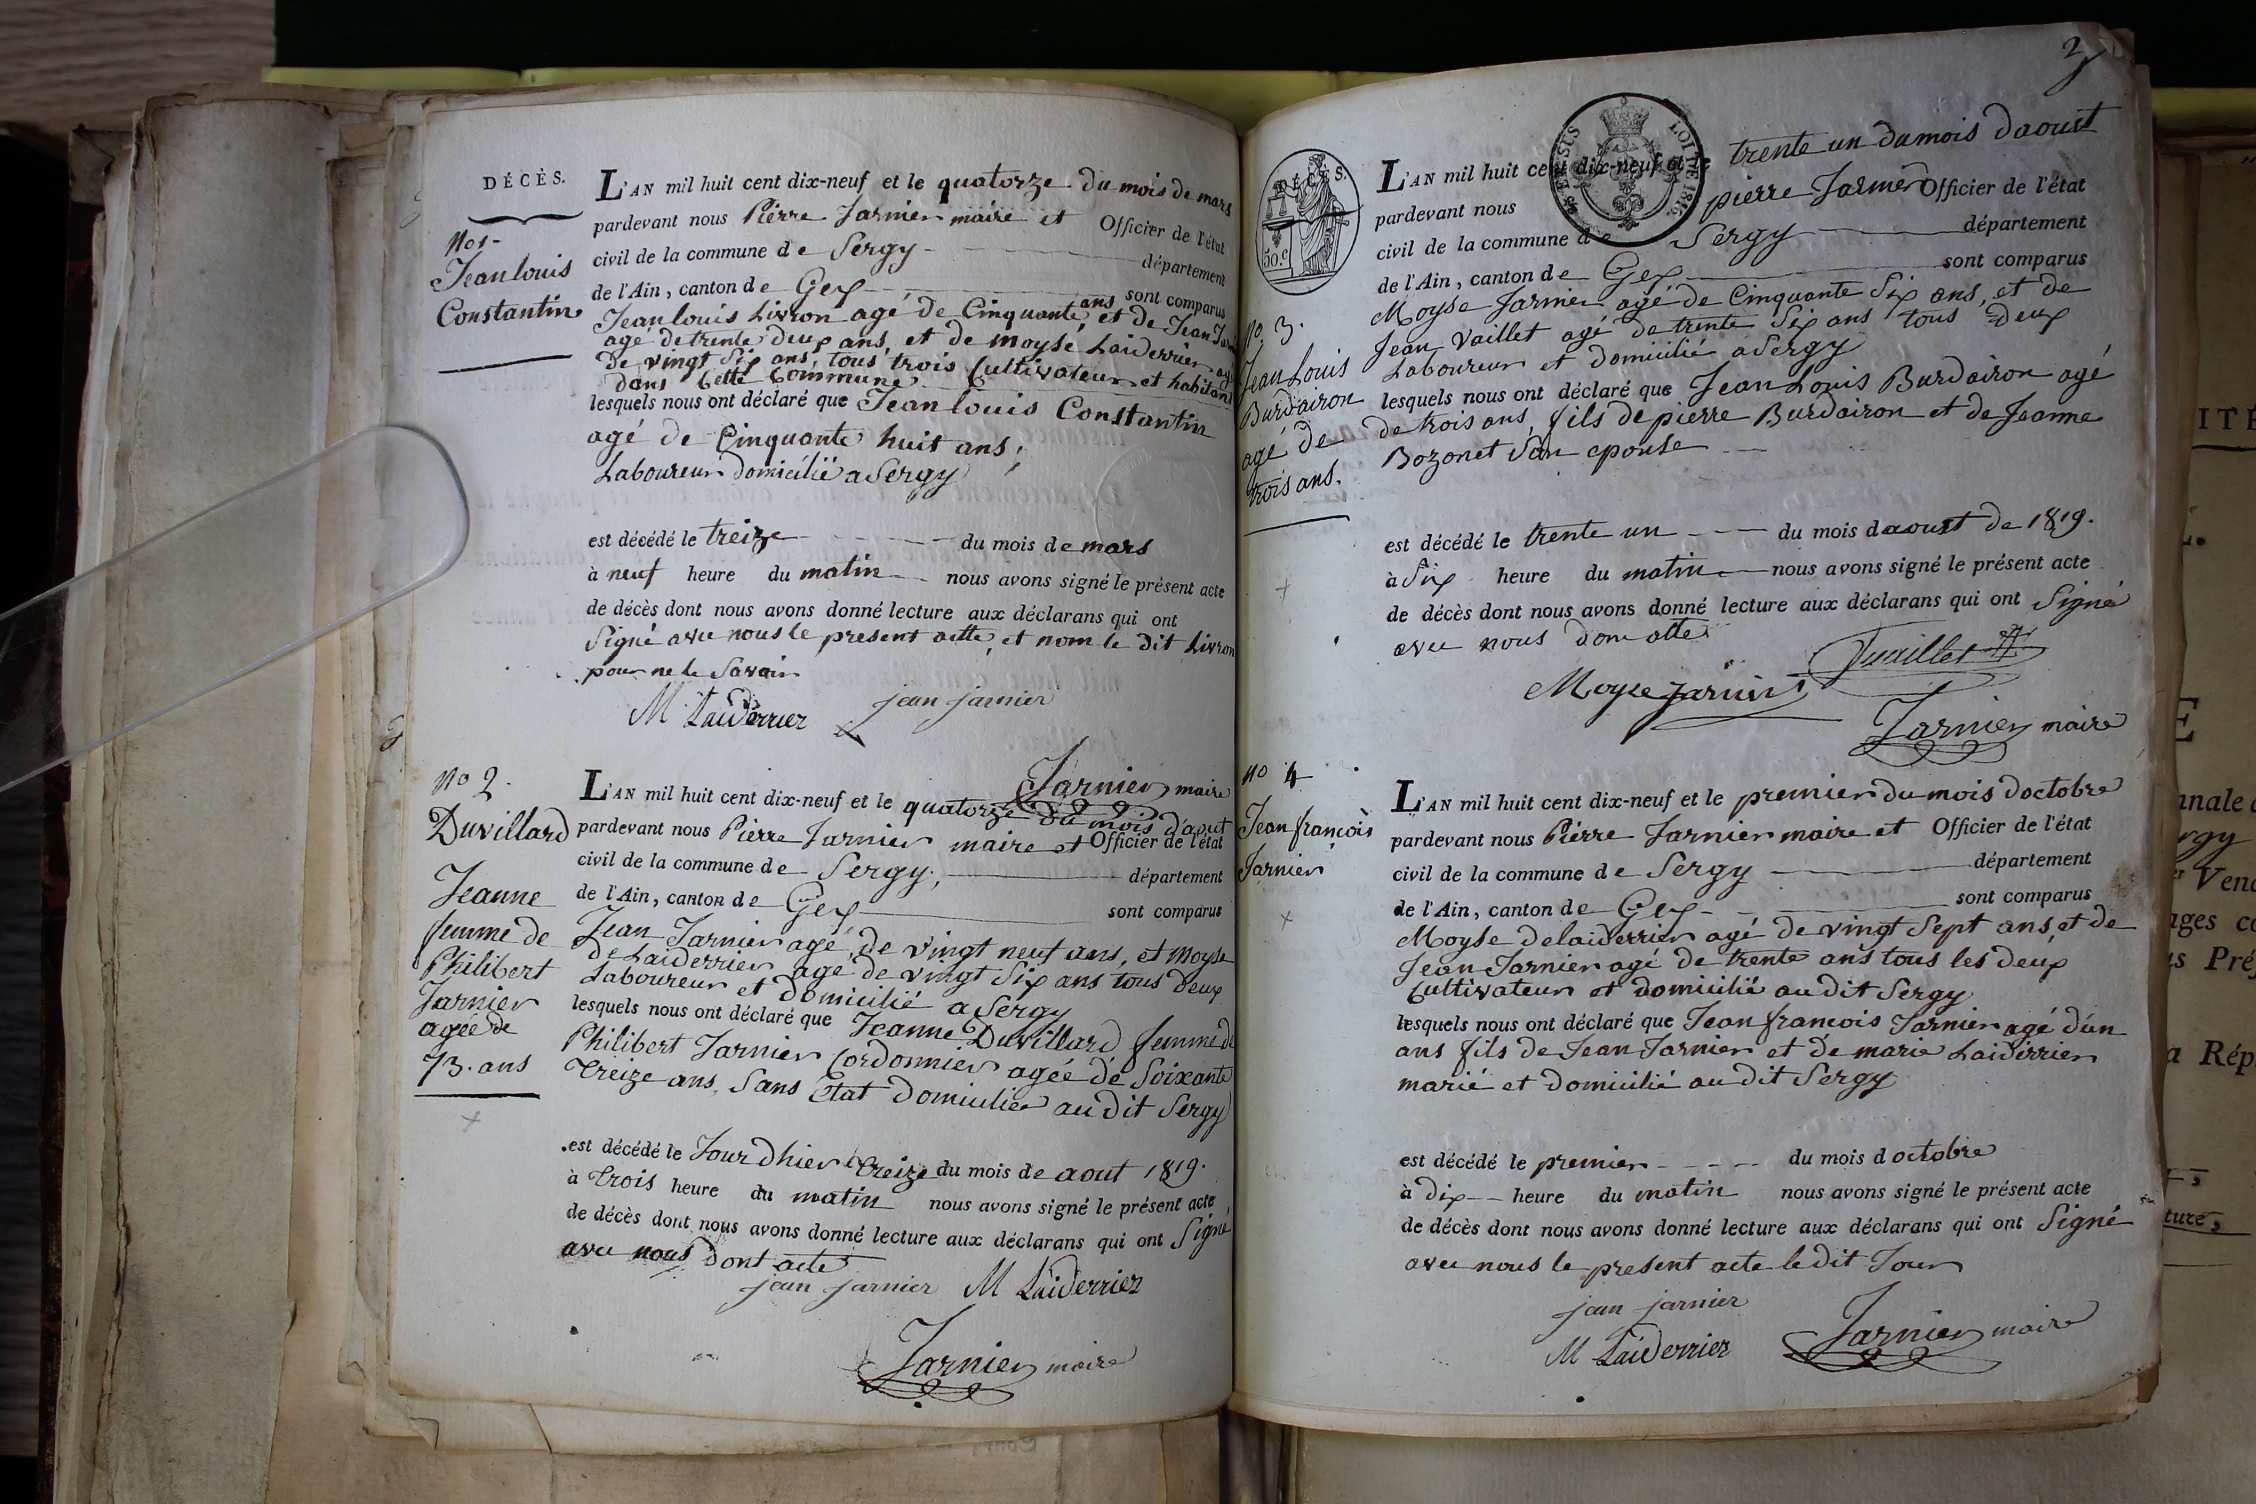 DÉCÈS.
No 1-
Jean louis
Constantin
L'AN mil huit cent dix-neuf et le quatorze du mois de mars
pardevant nous Pierre Jarnier maire et Officier de l'état
civil de la commune de Sergy département
de l'Ain, canton de Gex sont comparus
Jean louis Livron agé de Cinquante ans et de Jean
agé de trente deux ans, et de moyse Laiderrier agé
De vingt Six ans, tous trois Cultivateur et habitans
dans Cette Commune
lesquels nous ont déclaré que Jean louis Constantin
agé de Cinquante huit ans;
Laboureur domicilié a Sergy
est décédé le treize du mois de mars
à neuf heure du matin nous avons signé le présent acte
de décès dont nous avons donné lecture aux déclarans qui ont
Signé avec nous le present acte, et nom le dit Livron
pour ne le Savoir
M Laiderrier jean jarnier
Jarnier maire
No 2.
Duvillard
Jeanne
femme de
Philibert
Jarnier
agée de
73. ans
L'AN mil huit cent dix-neuf et le quatorze du mois d'aout
pardevant nous Pierre Jarnier maire et Officier de l'état
civil de la commune de Sergy, département
de l'Ain, canton de Gex sont comparus
Jean Jarnier agé, de vingt neuf ans, et Moyse
De Laiderrier agé de vingt Six ans tous deux
Laboureur et domicilié a Sergy
lesquels nous ont déclaré que Jeanne Duvillard femme de
Philibert Jarnier Cordonnier agée de Soixante
treize ans, Sans Etat domiciliée au dit Sergy
est décédé le Jour dhier treize du mois de aout 1819.
à trois heure du matin nous avons signé le présent acte
de décès dont nous avons donné lecture aux déclarans qui ont Signé
avec nous dont acte
jean jarnier M Laiderrier
Jarnier maire
2
DÉCÈS.
50.c
EN SUS
LOI DE 1816.
No 3.
Jean Louis
Burdairon
agé de
trois ans.
L'AN mil huit cent dix-neuf et le trente un du mois daoust
pardevant nous pierre Jarnier Officier de l'état
civil de la commune de Sergy département
de l'Ain, canton de Gex sont comparus
Moyse Jarnier agé de Cinquante Six ans, et de
Jean Vaillet agé de trente Six ans tous deux
Laboureur et domicilié a Sergy
lesquels nous ont déclaré que Jean Louis Burdairon agé
de trois ans, fils de pierre Burdairon et de Jeanne
Bozonet Son epouse
est décédé le trente un du mois daoust de 1819.
à Six heure du matin nous avons signé le présent acte
de décès dont nous avons donné lecture aux déclarans qui ont Signé
avec nous dont acte
Jvaillet
Moyse jarnier
Jarnier maire
No 4
Jean francois
Jarnier
L'AN mil huit cent dix-neuf et le premier du mois doctobre
pardevant nous Pierre Jarnier maire et Officier de l'état
civil de la commune de Sergy département
de l'Ain, canton de Gex sont comparus
Moyse delaiderrier agé de vingt Sept ans, et de
Jean Jarnier agé de trente ans tous les deux
Cultivateur et domicilié au dit Sergy
lesquels nous ont déclaré que Jean francois Jarnier agé d'un
ans fils de Jean Jarnier et de marie Laiderrier
marié et domicilié au dit Sergy
est décédé le premier du mois d octobre
à dix heure du matin nous avons signé le présent acte
de décès dont nous avons donné lecture aux déclarans qui ont Signé
avec nous le present acte le dit Jour
jean jarnier
M Laiderrier Jarnier maire
ITÉ
E
nnale
rgy
Vend
ages
Préf
a Rép
ture,